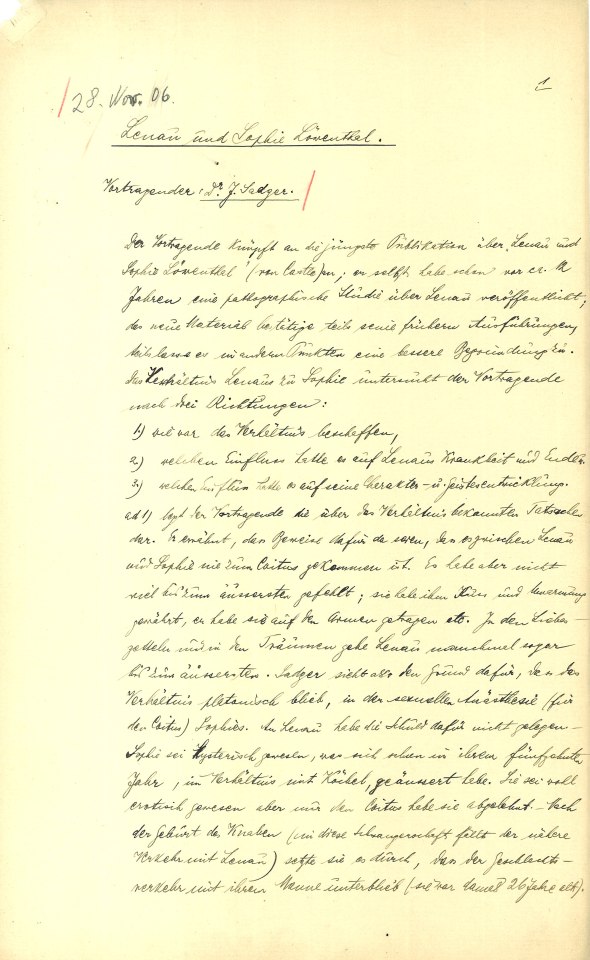 1
28. Nov. 06.
Lenau und Sophie Löwenthal.
Vortragender: Dr. J. Sadger.
Der Vortragende knüpft an die jüngste Publikation über „Lenau und
Sophie Löwenthal“ (von Castle) an; er selbst habe schon vor ca.
Jahren eine pathographische Studie über Lenau veröffentlicht;
das neue Material bestätige teils seine frühern Ausführungen,
teils lasse es in andern Punkten eine bessere Begründung zu.
Das Verhältnis Lenaus zu Sophie untersucht der Vortragende
nach drei Richtungen:
1) wie war das Verhältnis beschaffen,
2) welchen Einfluss hatte es auf Lenaus Krankheit und Ende,
3) welchen Einfluss hatte es auf seine Charakter- u. Geistesentwicklung.
ad 1) legt der Vortragende die über das Verhältnis bekannten Tatsachen
dar. Er erwähnt, dass Beweise dafür da seien, dass es zwischen Lenau
und Sophie nie zum Coitus gekommen ist. Es habe aber nicht
viel bis zum äussersten gefehlt; sie habe ihm Küsse und Umarmung
gewährt, er habe sie auf den Armen getragen etc. In den Liebes-
zetteln und in den Träumen gehe Lenau manchmal sogar
bis zum äussersten. Sadger sieht also den Grund dafür, dass das
Verhältnis platonisch blieb, in der sexuellen Anästhesie (für
den Coitus) Sophies. An Lenau habe die Schuld dafür nicht gelegen-
Sophie sei hysterisch gewesen, was sich schon in ihrem fünfzehnten
Jahr, im Verhältnis mit Köchel, geäussert habe. Sie sei voll
erotisch gewesen aber nur den Coitus habe sie abgelehnt. - Nach
der Geburt des Knaben (in diese Schwangerschaft fällt der nähere
Verkehr mit Lenau) setzte sie es durch, dass der Geschlechts-
verkehr mit ihrem Manne unterblieb (sie war damals 26 Jahre alt).